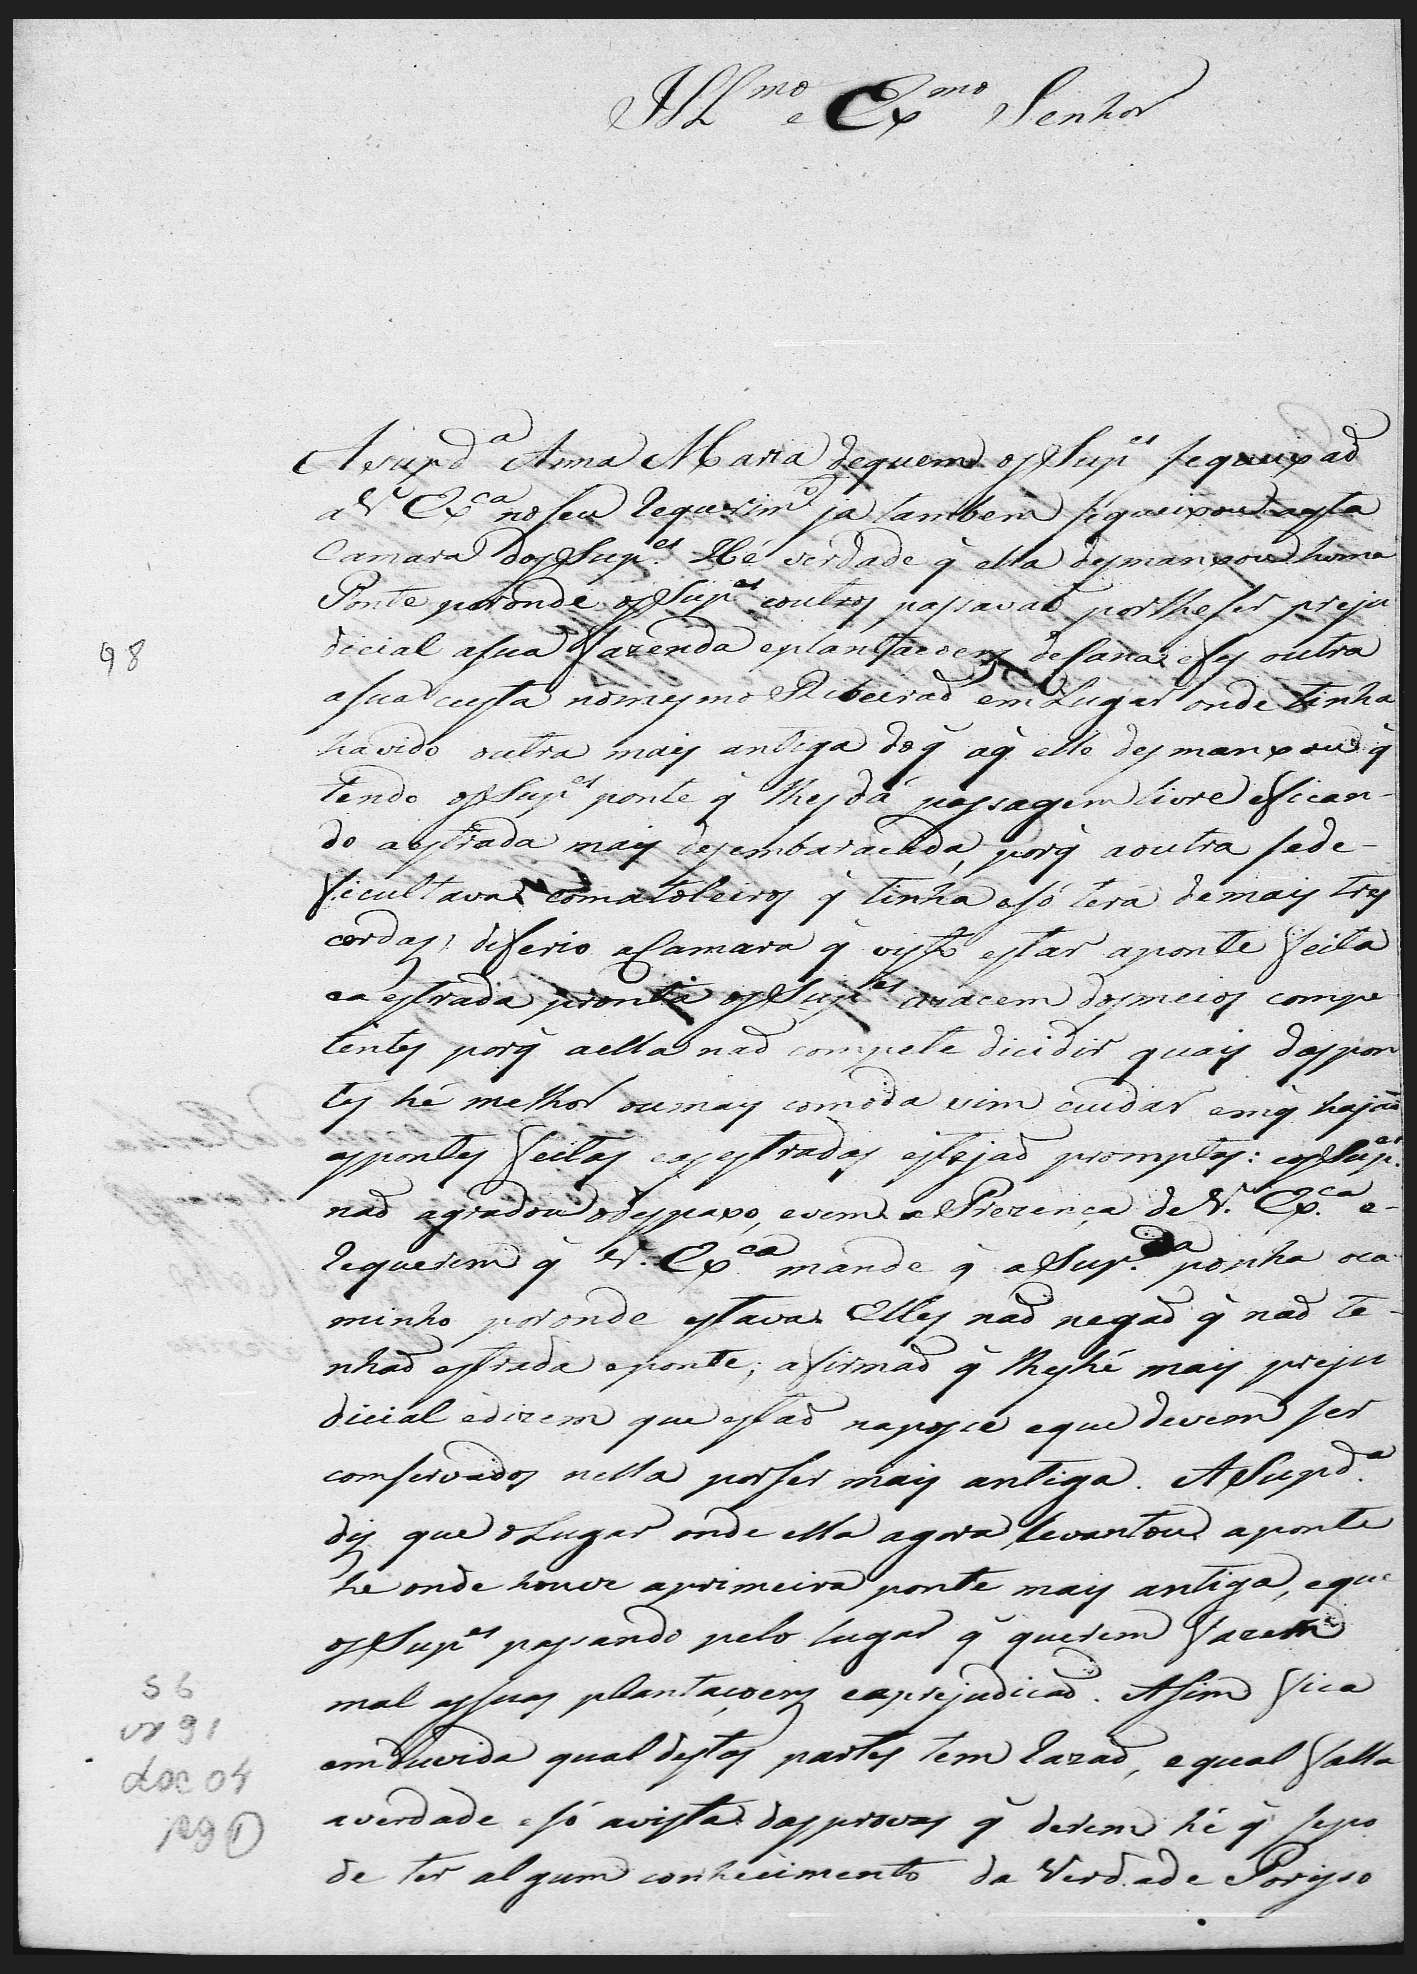 Ill.mo e Ex.mo Senhor
A Supd.a Anna Maria dequem os Sup.es sequeixaõ
a V. Ex.ca no seu requerim.to ja tambem sequeixou aesta
Camara dos Sup.es. Hé verdade q̃ ella desmanxou huma
Ponte poronde os Sup.es eoutros passavaõ porlheser preju
dicial asua fazenda eplantacoens deCana, efes outra
asua custa nomesmo Ribeiraõ em Lugar onde tinha
havido outra mais antiga doq̃ aq̃ ella desmanxou q̃
tendo os Sup.es ponte q̃ lhes dá passagem livre efican-
do aestrada mais desembaracada, porq̃ aoutra sede-
ficultava com atoleiros q̃ tinha esó terá demais tres
cordas, deferio aCamara q̃ visto estar aponte feita
eaestrada pronta os Sup.es uzacem dosmeios compe
tentes porq̃ aella naõ compete dicidir quais daspon
tes hé melhor oumais comoda esim cuidar emq̃ hajaõ
aspontes feitas easestradas estejaõ promptas: eosSup.es
naõ agradou odespaxo, evem a Prezença de V. Ex.ca e-
requerem q̃ V. Ex.ca mande q̃ aSup.da ponha oca
minho poronde estava. Elles naõ negaõ q̃ naõ te-
nhaõ estrada eponte; afirmaõ q̃ lheshé mais preju
dicial edizem que estaõ naposce eque devem ser
comservados nella porser mais antiga. ASupd.a
dis que oLugar onde ella agora levantou aponte
hé onde houve aprimeira ponte mais antiga, eque
os Sup.es passando pelo lugar q̃ querem fazem
mal assuas plantaçoens eaprejudicaõ. Asim fica
emduvida qual destas partes tem razaõ, equal falla
averdade esó avista dasprovas q̃ derem hé q̃ sepo
de ter algum conhecimento da Verdade Porisso
98
56
cx 91
doc 04
pg 1